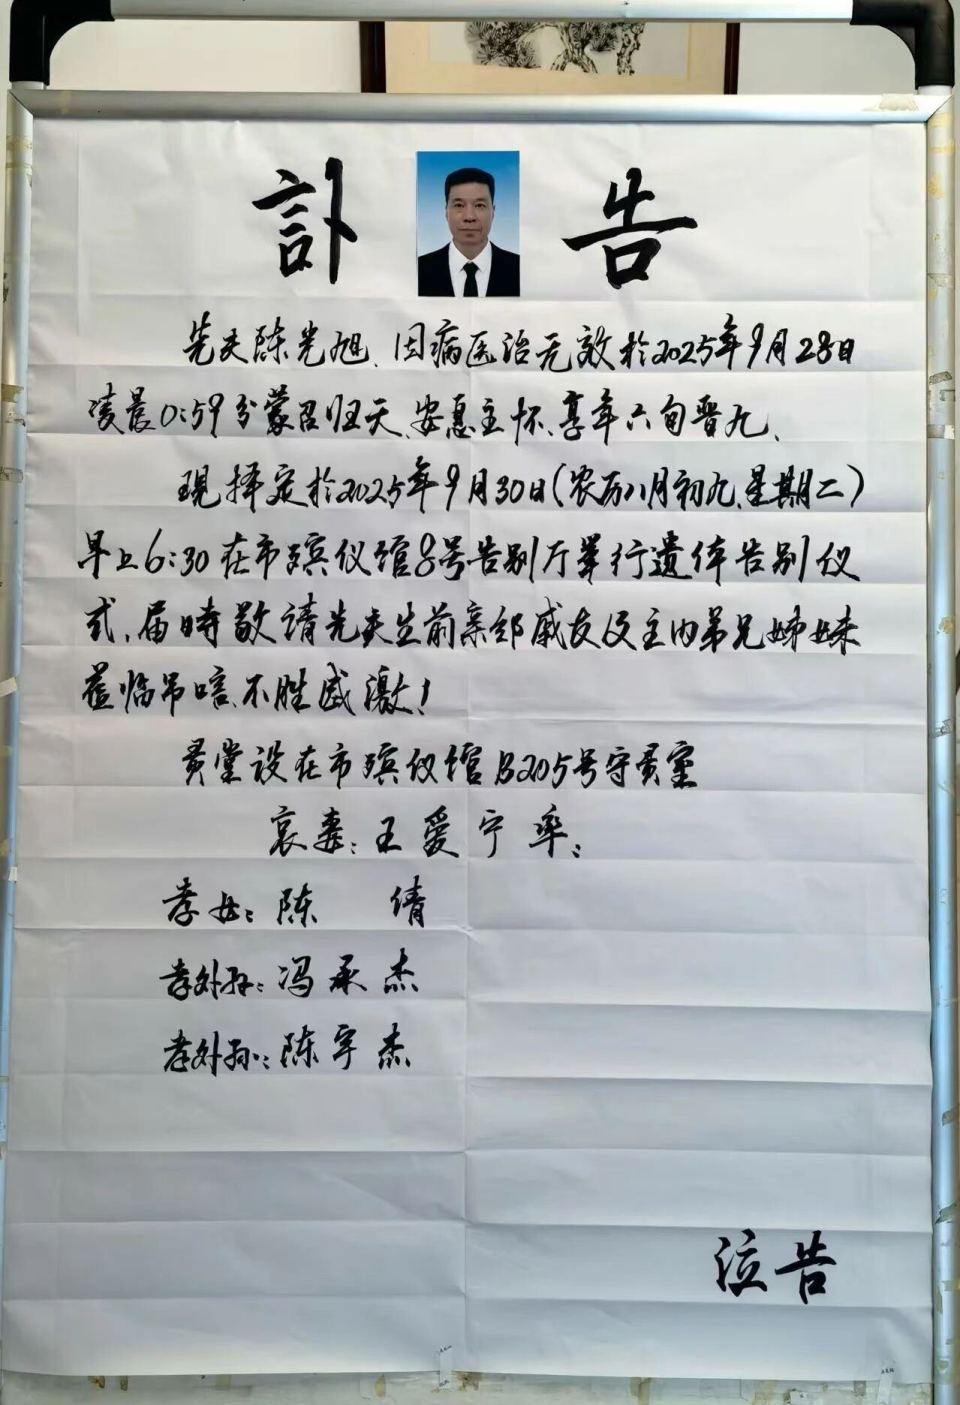 訃告
先夫陈光旭、因病医治无效於2025年9月28日
凌晨0:59分蒙召归天、安息主怀、享年六旬晋九、
現择定於2025年9月30日(农历八月初九、星期二)
早上6:30在市殡仪馆8号告别厅举行遗体告别仪
式、届時敬请先夫生前亲邻戚友及主内弟兄姊妹
莅临吊唁、不胜感激!
灵堂设在市殡仪馆B205号守灵室
哀妻:王爱宁率:
孝女:陈 倩
孝外孙:冯承杰
孝外孙:陈宇杰
泣告